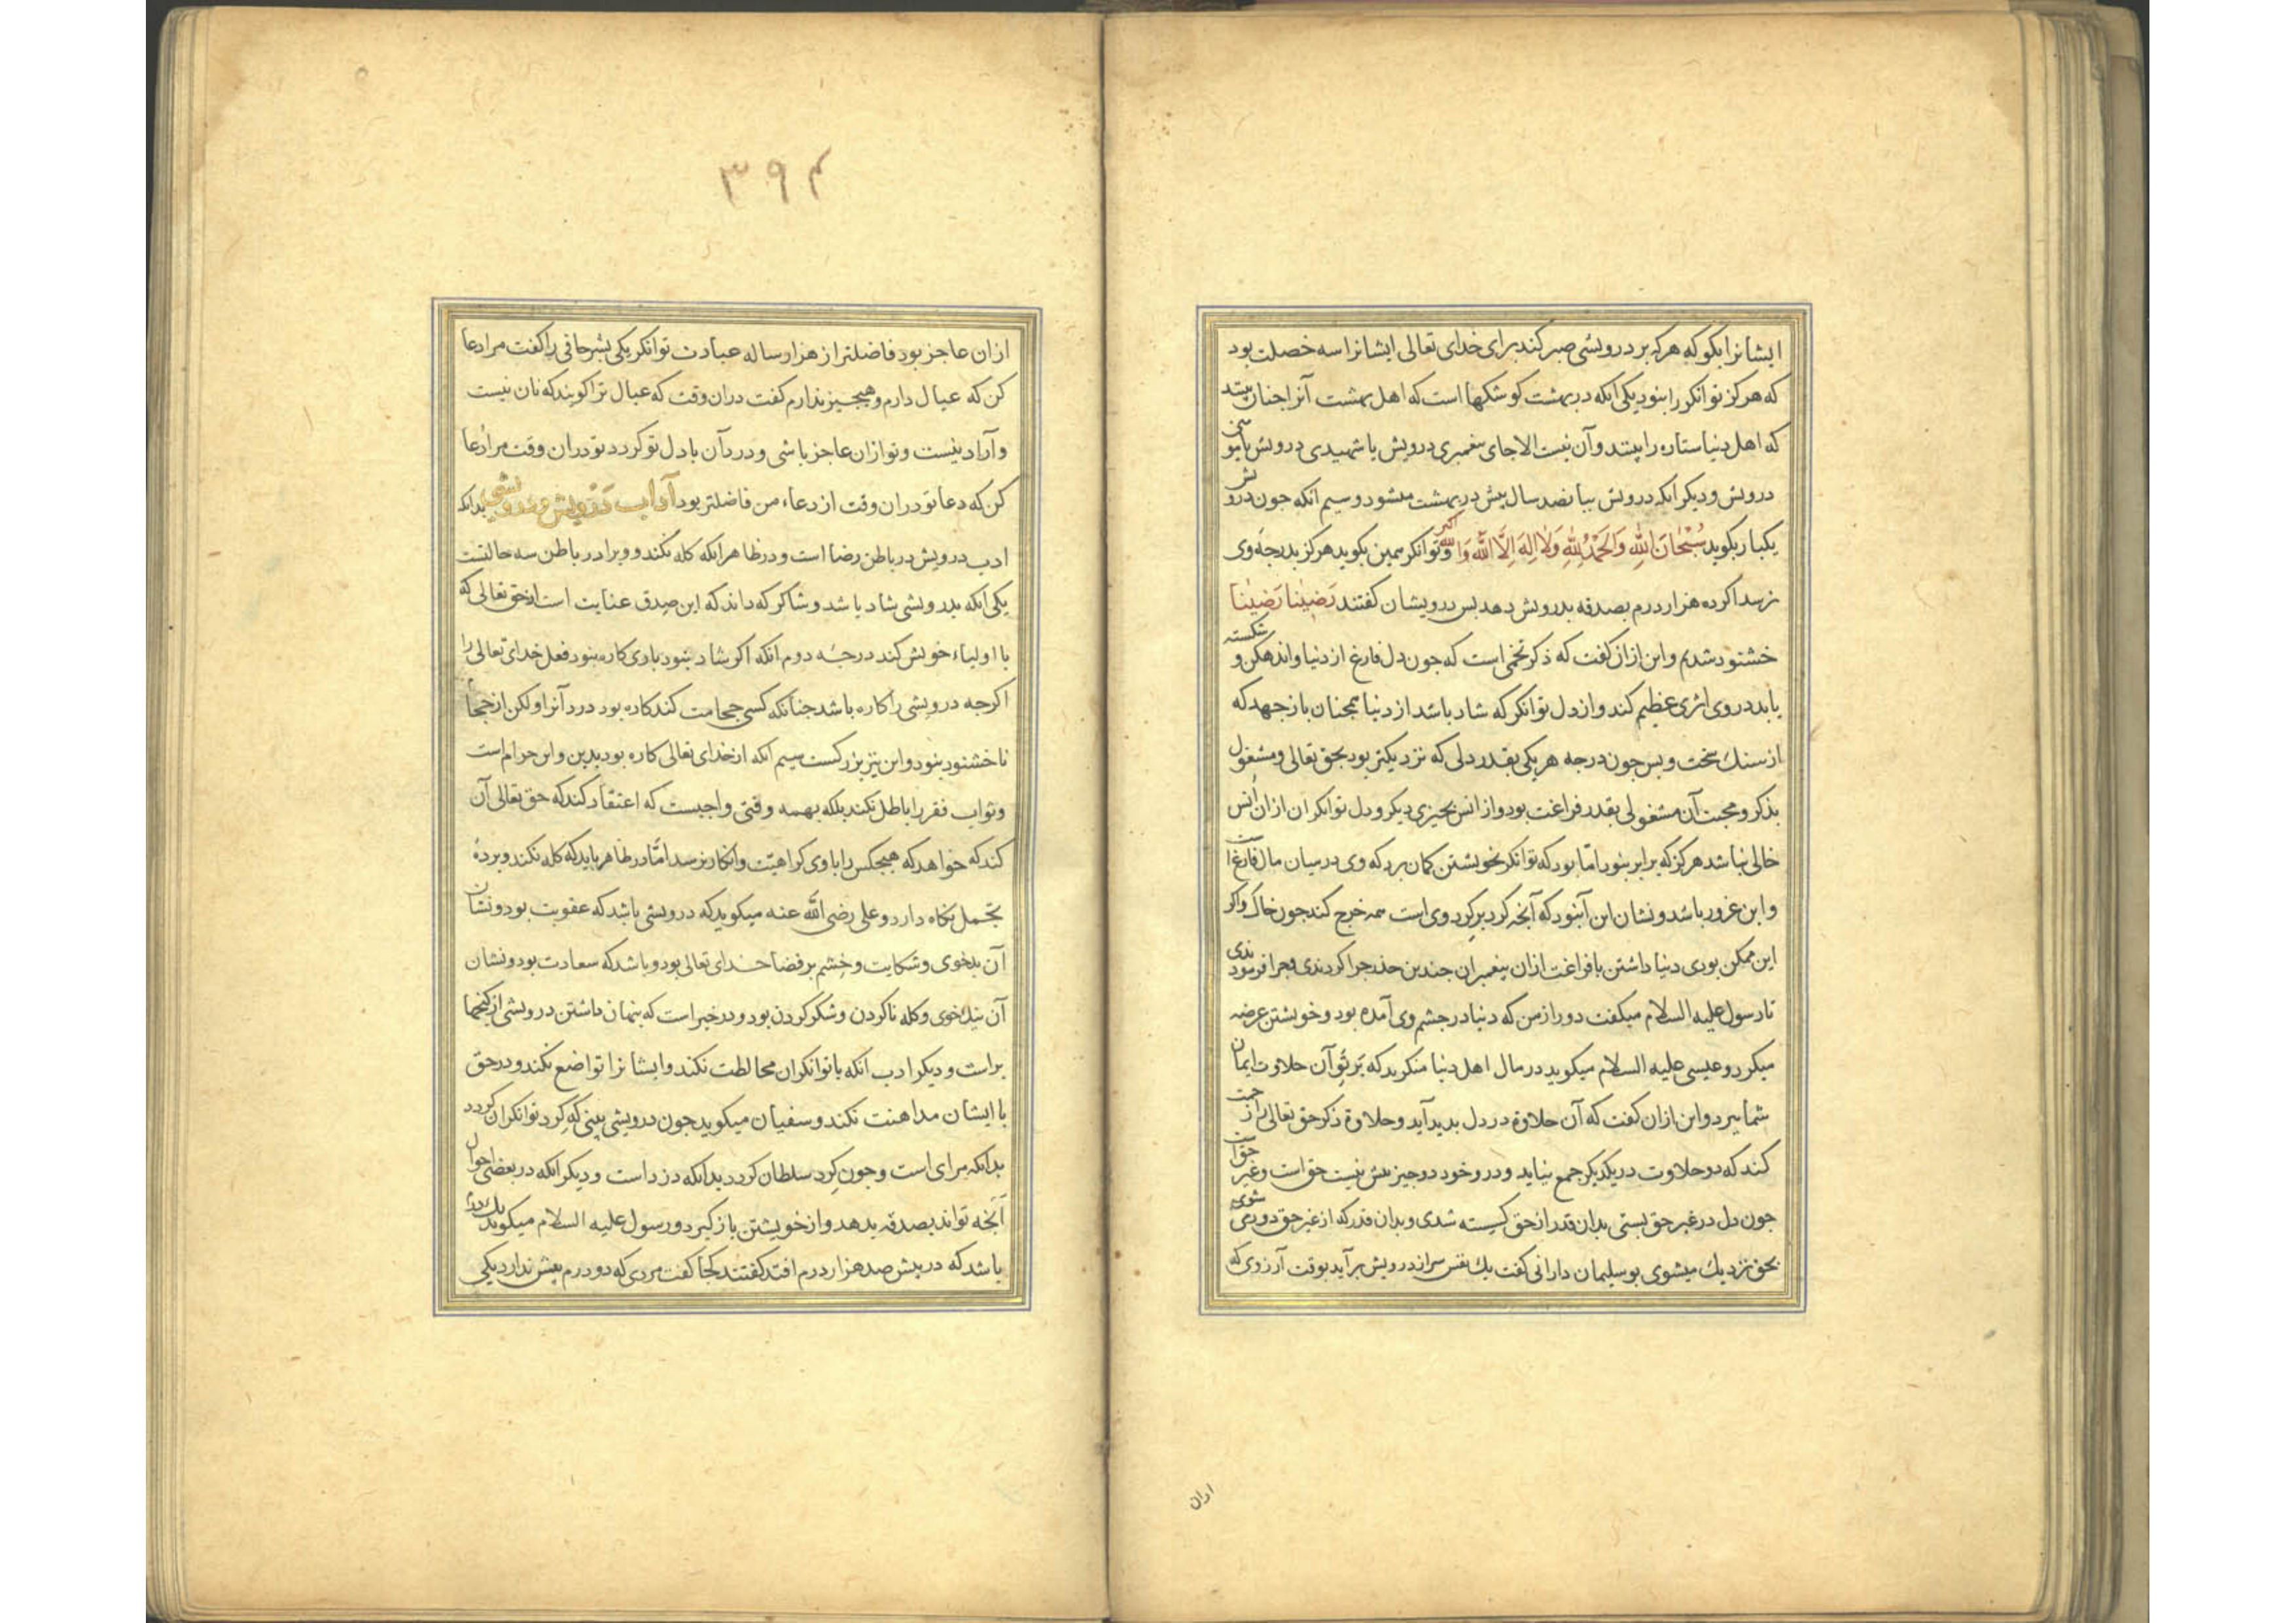 ایشانرا بگو که هرکه بر درویشی صبر کند برای خدای تعالی ایشانرا سه خصلت بود
که هرکز توانکر را نبود یکی انکه در بهشت کوشکها است که اهل بهشت آنرا چنان بینند
که اهل دنیا ستاره را بینند وآن نیست الا جای پیغمبری درویش یا شهیدی درویش یا مومنی
درویش و دیکر انکه درویش بپانصد سال پیش در بهشت میشود و سیم انکه چون درویش
یکبار بکوید سُبْحَانَ اللهِ وَالحَمْدُ لِلّٰهِ وَلَا اِلٰهَ اِلَّا اللهُ وَاللهُ اکبر و توانکر همین بکوید هرکز بدرجهٔ وی
نرسد اکر ده هزار درم بصدقه بدرویش دهد بس درویشان کفتند رَضینٰا رَضینٰا
خشنود شدیم و این ازان کفت که ذکر تخمی است که چون دل فارغ از دنیا و اندهکن و شکسته
یابد در وی اثری عظیم کند و از دل توانکر که شاد باشد از دنیا همچنان باز جهد که
از سنك سخت و بس چون درجه هر یکی بقدر دلی که نزدیکتر بود بحق تعالی و مشغول
بذکر و محبت آن مشغولی بقدر فراغت بود و از انس بچیزی دیکر و دل توانکران ازان اُنس
خالی نباشد هرکز که برابر نبود امّا بود که توانکر بخویشتن کمان برد که وی در میان مال فارغ است
و این غرور باشد و نشان این آنبود که آنچه کرد بر کردوی است همه خرج کند چون خاك و اکر
این ممکن بودی دنیا داشتن با فراغت ازان پیغمبران چندین حذر چرا کردندی و چرا فرمودندی
تا رسول علیه السلام میکفت دور از من که دنیا در چشم وی آمده بود و خویشتن عرضه
میکرد و عیسی علیه السلام میکوید در مال اهل دنیا منکرید که پَرتَوِ آن حلاوت ایمان
شما ببرد و این ازان کفت که آن حلاوة در دل بدید آید و حلاوة ذکر حق تعالی را زحمت
کند که دو حلاوت در یکدیکر جمع نیاید و در وجود دو چیز بیش نیست حق است و غیر حق است
چون دل در غیر حق بستی بدان قدر از حق کسسته شدی و بدان قدر که از غیر حق دور می شوی
بحق نزدیك میشوی بوسلیمان دارانی کفت یك نفس سرد از درویش برآید بوقت آرزوی که
اران
۳۹۴
ازان عاجز بود فاضلتر از هزار ساله عبادت توانکر یکی بشر حافی را کفت مرا دعا
کن که عیال دارم و هیچ چیز ندارم کفت دران وقت که عیال ترا کویند که نان نیست
و آرد نیست و تو ازان عاجز باشی و درد آن با دل تو کردد تو دران وقت مرا دعا
کن که دعا تو دران وقت از دعاء من فاضلتر بود آداب دَرْویش و درویشی بدانکه
ادب درویش در باطن رضا است و در ظاهر انکه کله نکند و ویرا در باطن سه حالتست
یکی انکه بدرویشی شاد باشد و شاکر که داند که این صدق عنایت است از حق تعالی که
با اولیاء خویش کند درجهٔ دوم انکه اکر شاد نبود باری کاره نبود فعل خدای تعالی را
اکرچه درویشی را کاره باشد چنانکه کسی حجامت کند کاره بود درد آنرا و لکن از حجام
ناخشنود نبود و این نیز بزرکست سیم انکه از خدای تعالی کاره بود بدین و این حرام است
و ثواب فقر را باطل نکند بلکه بهمه وقتی واجبست که اعتقاد کند که حق تعالی آن
کند که خواهد که هیچکس را با وی کراهیّت و انکار نرسد امّا در ظاهر باید که کله نکند و پردهٔ
تجمل نکاه دارد و علی رضی الله عنه میکوید که درویشی باشد که عقوبت بود و نشان
آن بدخوی و شکایت و خشم بر قضا خدای تعالی بود و باشد که سعادت بود و نشان
آن نیك خوی و کله ناکردن و شکر کردن بود و در خبر است که پنهان داشتن درویشی از کنجها
بر است و دیکر ادب انکه با توانکران مخالطت نکند و ایشانرا تواضع نکند و در حق
با ایشان مداهنت نکند و سفیان میکوید چون درویشی بینی که کِرد توانکران کردد
بدانکه مرای است و چون کِرد سلطان کردد بدانکه دزد است و دیکر انکه در بعضی احوال
آنچه تواند بصدقه بدهد و از خویشتن باز کیرد و رسول علیه السلام میکوید یك درم
باشد که در پیش صد هزار درم افتد کفتند کجا کفت مردی که دو درم پیش ندارد یکی